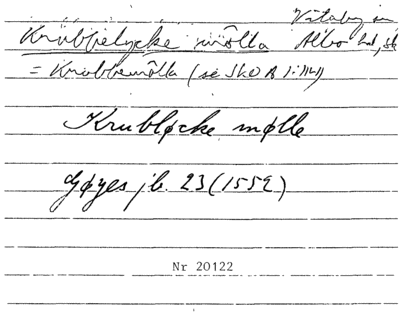 Vitaby sn
Krubbelycke mölla Albo hd, Sk
= Krubbemölla (se SkO A 1:111)
Krubløcke mølle
Gøyes jb. 23 (1552)
Nr 20122